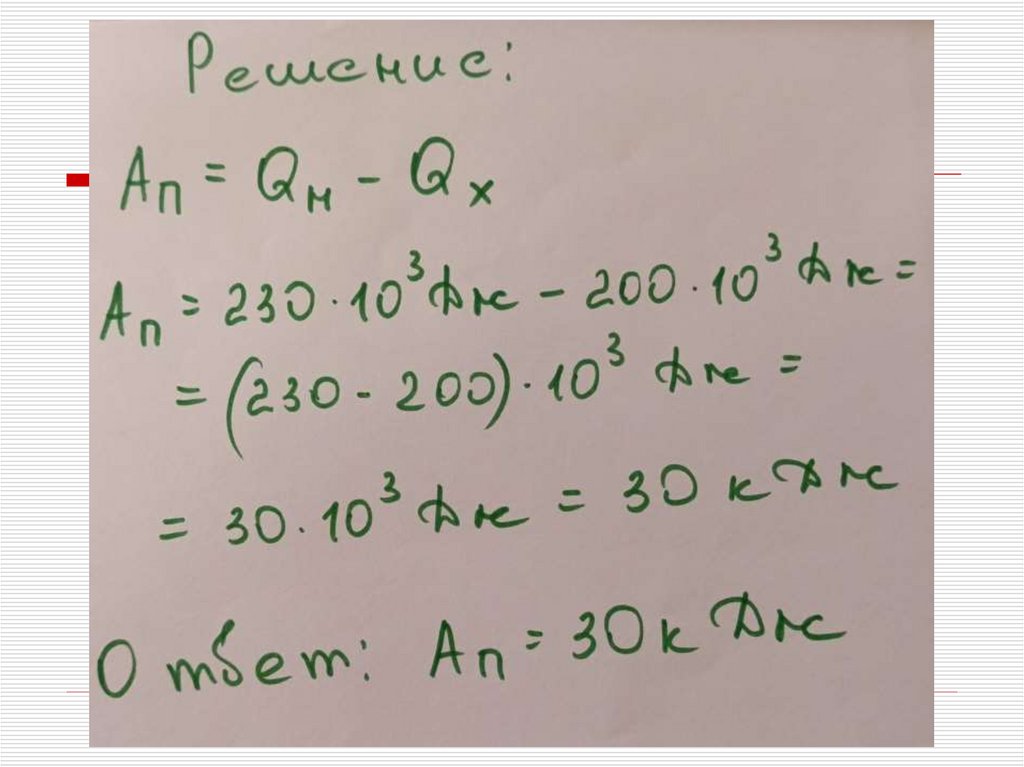 Решение:
Aп = Qн - Qх
Aп = 230·10³ Дж - 200·10³ Дж =
= (230 - 200)·10³ Дж =
= 30·10³ Дж = 30 кДж
Ответ: Aп = 30 кДж